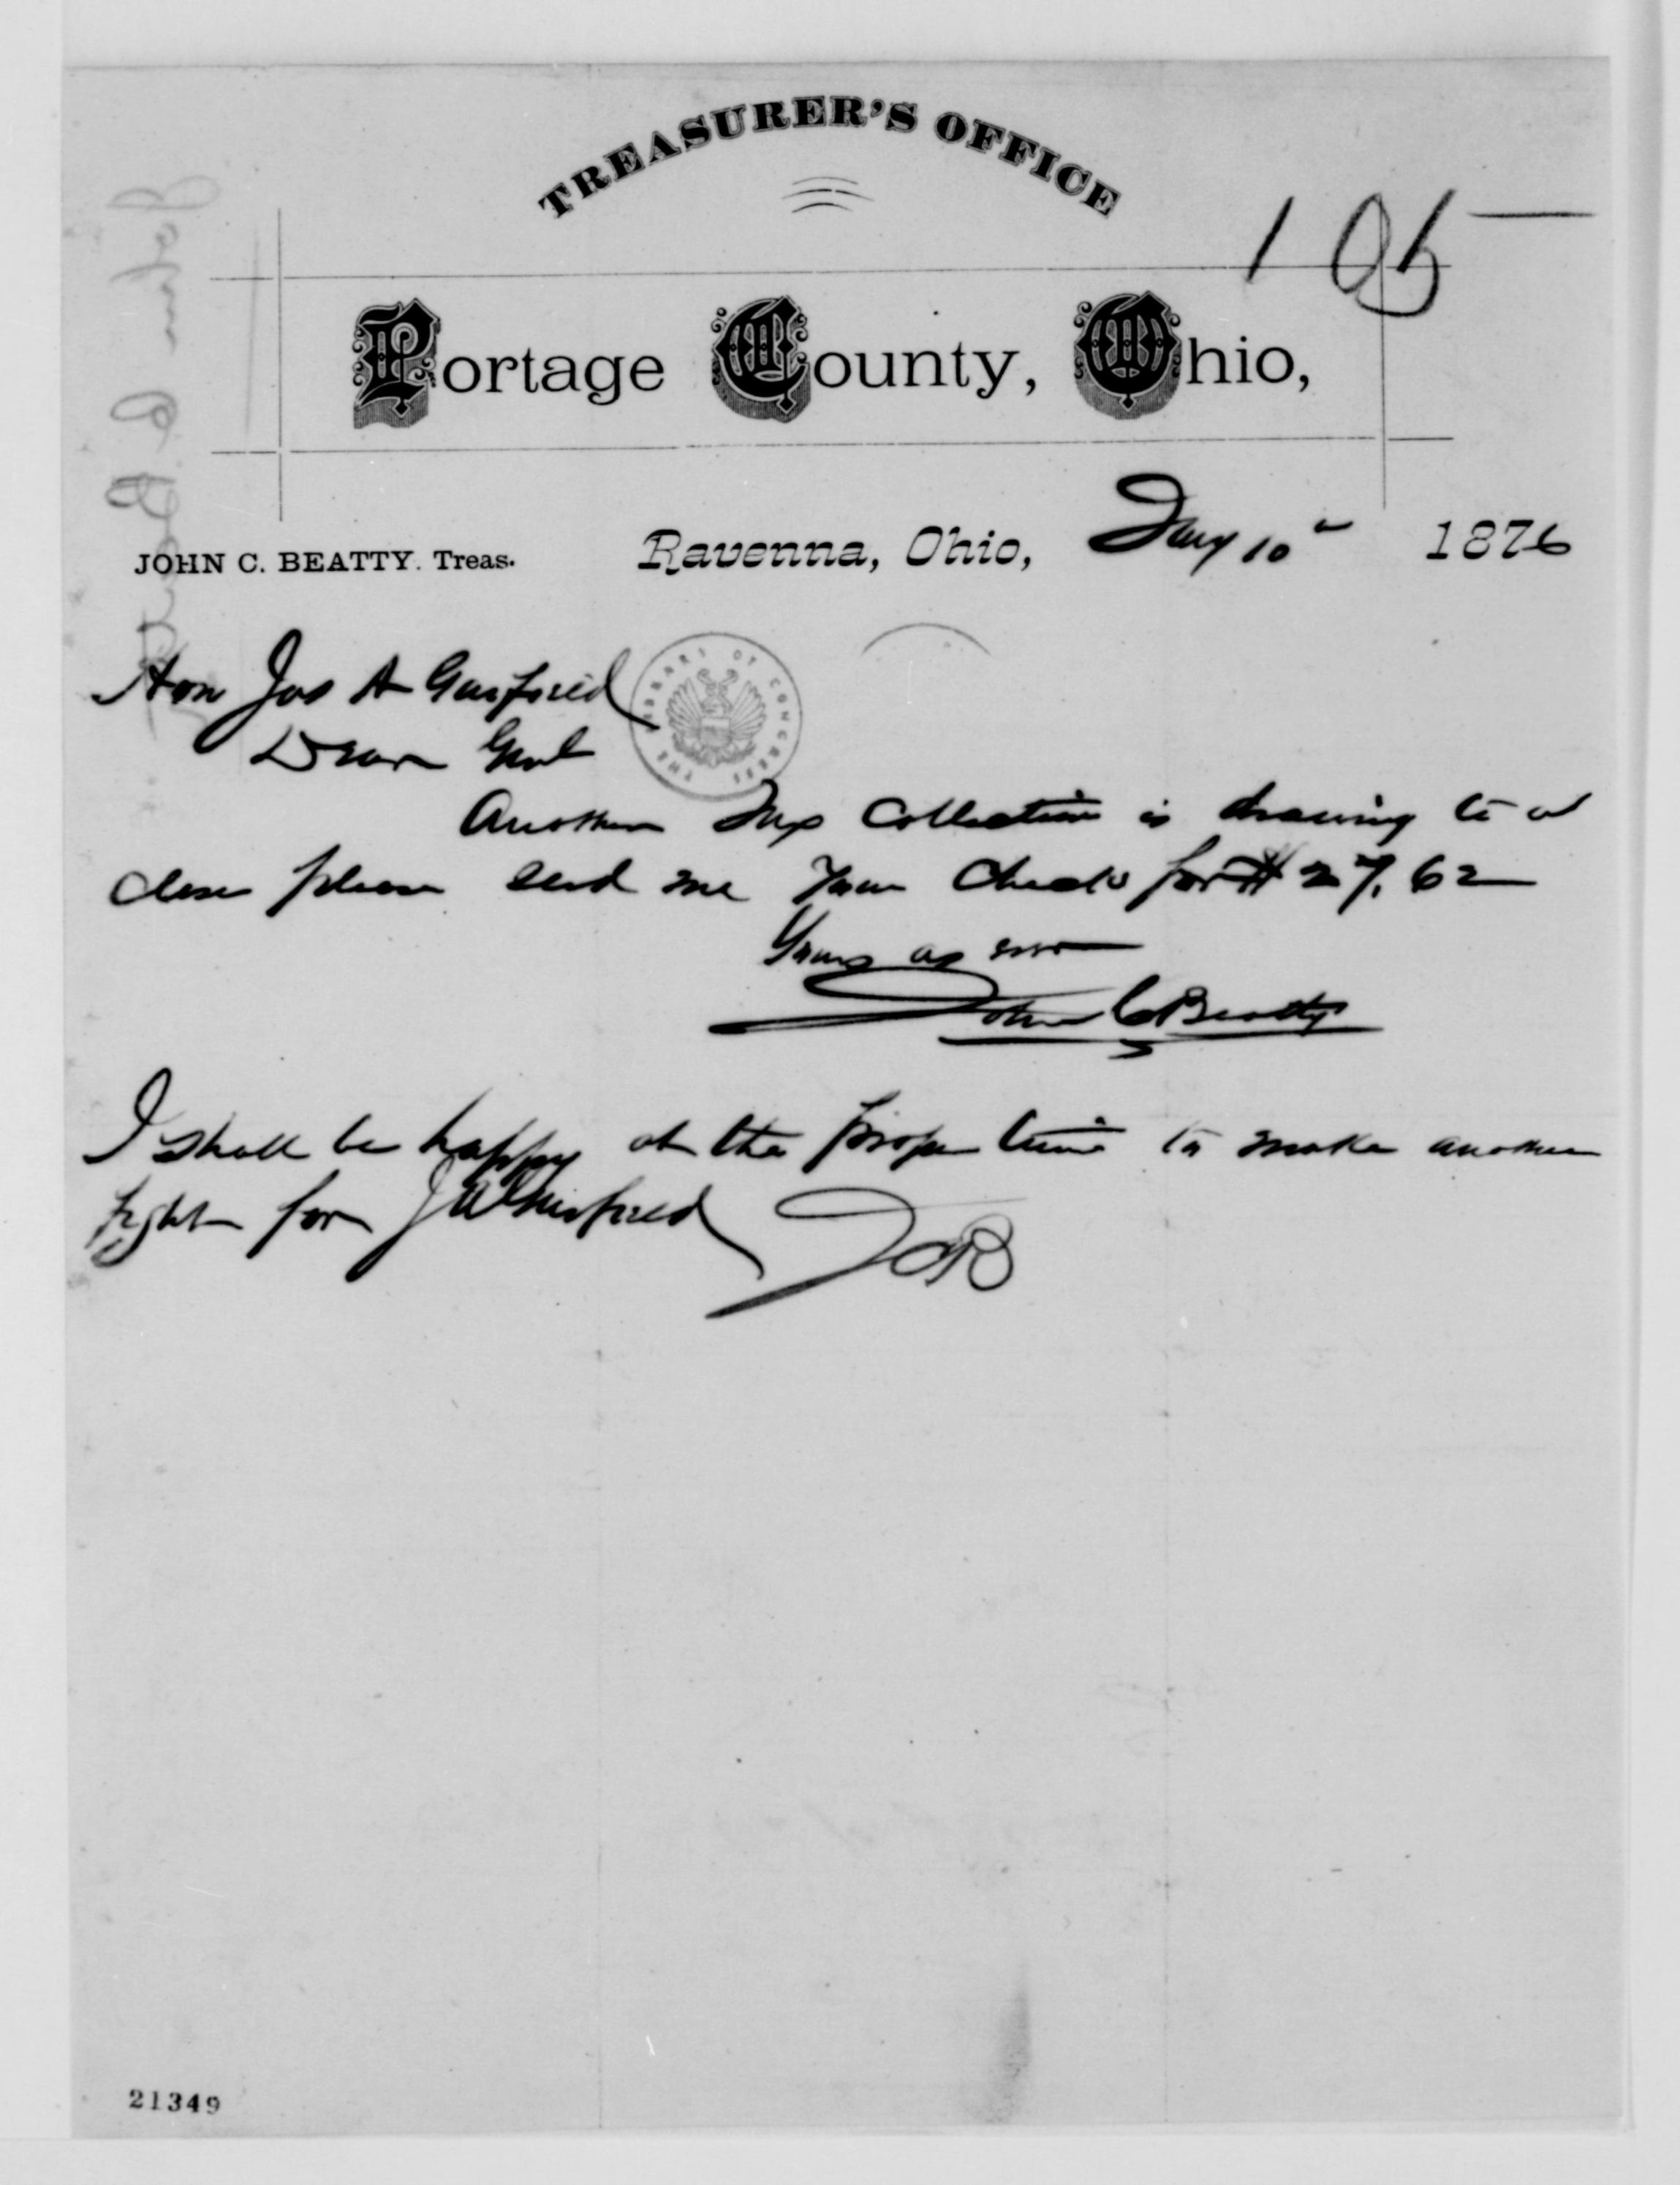 TREASURER'S OFFICE
105
Portage County, Ohio,
JOHN C. BEATTY. Treas. Ravenna, Ohio, Jany 10" 1876
Hon Jas A Garfield
Dear Genl
THE LIBRARY OF CONGRESS
Another Tax Collection is drawing to a
close please send me your Check for $27.62
Yours as ever
John C Beatty
I shall be happy at the proper time to make another
fight for J A Garfield JCB
21349